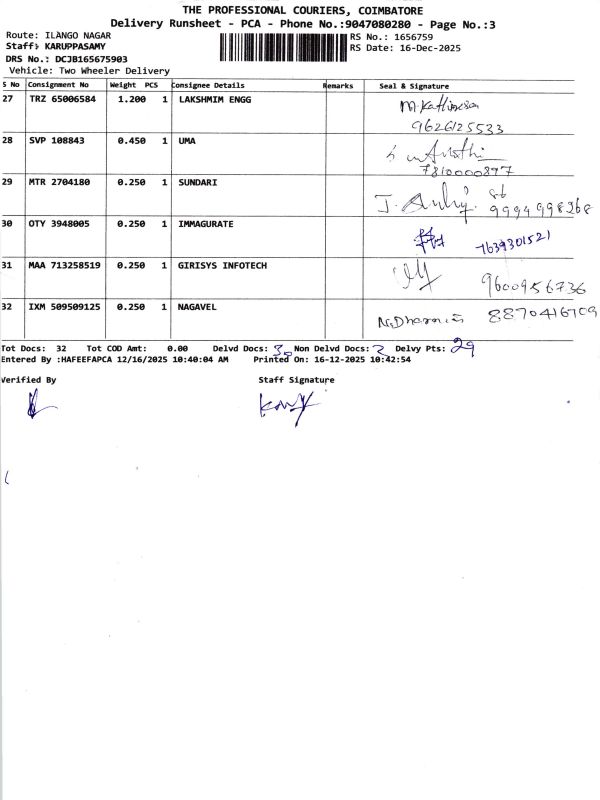 THE PROFESSIONAL COURIERS, COIMBATORE
Delivery Runsheet - PCA - Phone No.:9047080280 - Page No.:3
Route: ILANGO NAGAR
RS No.: 1656759
Staff: KARUPPASAMY
RS Date: 16-Dec-2025
DRS No.: DCJB165675903
Vehicle: Two Wheeler Delivery
S No Consignment No Weight PCS Consignee Details Remarks Seal & Signature
27 TRZ 65006584 1.200 1 LAKSHMIM ENGG
9626125533
28 SVP 108843 0.450 1 UMA
7810000877
29 MTR 2704180 0.250 1 SUNDARI
9994998268
30 OTY 3948005 0.250 1 IMMAGURATE
7639301521
31 MAA 713258519 0.250 1 GIRISYS INFOTECH
9600956736
32 IXM 509509125 0.250 1 NAGAVEL
8870416709
Tot Docs: 32 Tot COD Amt: 0.00 Delvd Docs: 30 Non Delvd Docs: 2 Delvy Pts: 29
Entered By :HAFEEFAPCA 12/16/2025 10:40:04 AM Printed On: 16-12-2025 10:42:54
Verified By Staff Signature